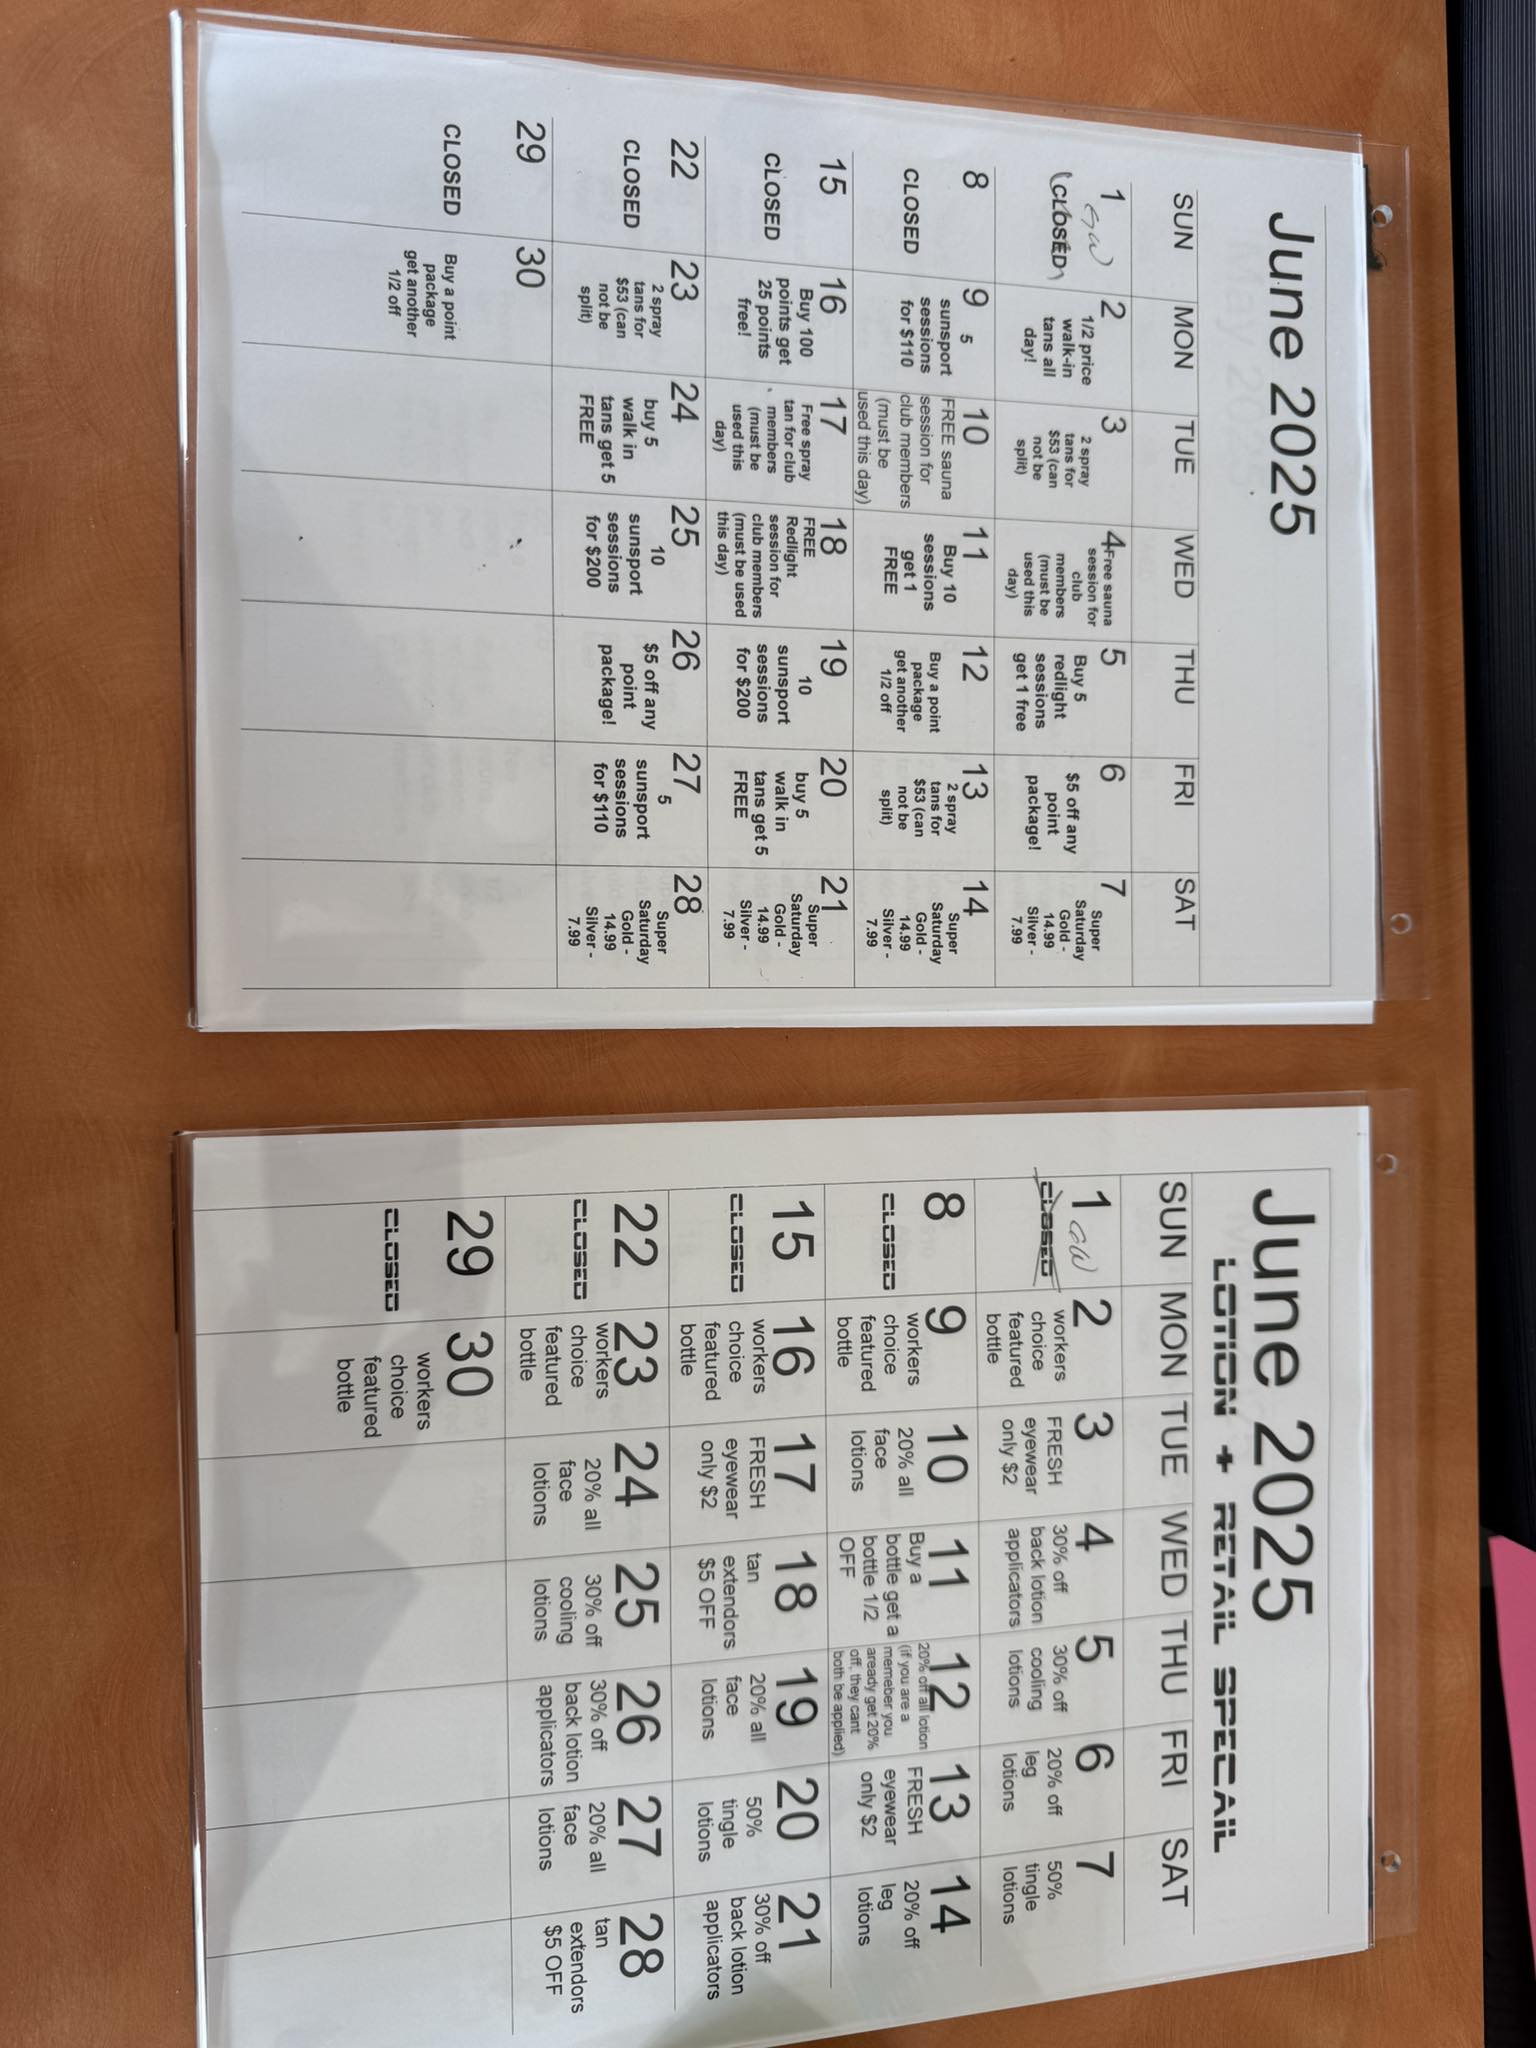 June 2025
SUN MON TUE WED THU FRI SAT
1 GW
(CLOSED)
2
1/2 price
walk-in
tans all
day!
3
2 spray
tans for
$53 (can
not be
split)
4 Free sauna
session for
club
members
(must be
used this
day)
5
Buy 5
redlight
sessions
get 1 free
6
$5 off any
point
package!
7
Super
Saturday
Gold -
14.99
Silver -
7.99
8
CLOSED
9
5
sunsport
sessions
for $110
10
FREE sauna
session for
club members
(must be
used this day)
11
Buy 10
sessions
get 1
FREE
12
Buy a point
package
get another
1/2 off
13
2 spray
tans for
$53 (can
not be
split)
14
Super
Saturday
Gold -
14.99
Silver -
7.99
15
CLOSED
16
Buy 100
points get
25 points
free!
17
Free spray
tan for club
members
(must be
used this
day)
18
FREE
Redlight
session for
club members
(must be used
this day)
19
10
sunsport
sessions
for $200
20
buy 5
walk in
tans get 5
FREE
21
Super
Saturday
Gold -
14.99
Silver -
7.99
22
CLOSED
23
2 spray
tans for
$53 (can
not be
split)
24
buy 5
walk in
tans get 5
FREE
25
10
sunsport
sessions
for $200
26
$5 off any
point
package!
27
5
sunsport
sessions
for $110
28
Super
Saturday
Gold -
14.99
Silver -
7.99
29
CLOSED
30
Buy a point
package
get another
1/2 off
June 2025
LOTION + RETAIL SPECAIL
SUN MON TUE WED THU FRI SAT
1 GW
CLOSED
2
workers
choice
featured
bottle
3
FRESH
eyewear
only $2
4
30% off
back lotion
applicators
5
30% off
cooling
lotions
6
20% off
leg
lotions
7
50%
tingle
lotions
8
CLOSED
9
workers
choice
featured
bottle
10
20% all
face
lotions
11
Buy a
bottle get a
bottle 1/2
OFF
12
20% off all lotion
(if you are a
memeber you
aready get 20%
off, they cant
both be applied)
13
FRESH
eyewear
only $2
14
20% off
leg
lotions
15
CLOSED
16
workers
choice
featured
bottle
17
FRESH
eyewear
only $2
18
tan
extendors
$5 OFF
19
20% all
face
lotions
20
50%
tingle
lotions
21
30% off
back lotion
applicators
22
CLOSED
23
workers
choice
featured
bottle
24
20% all
face
lotions
25
30% off
cooling
lotions
26
30% off
back lotion
applicators
27
20% all
face
lotions
28
tan
extendors
$5 OFF
29
CLOSED
30
workers
choice
featured
bottle